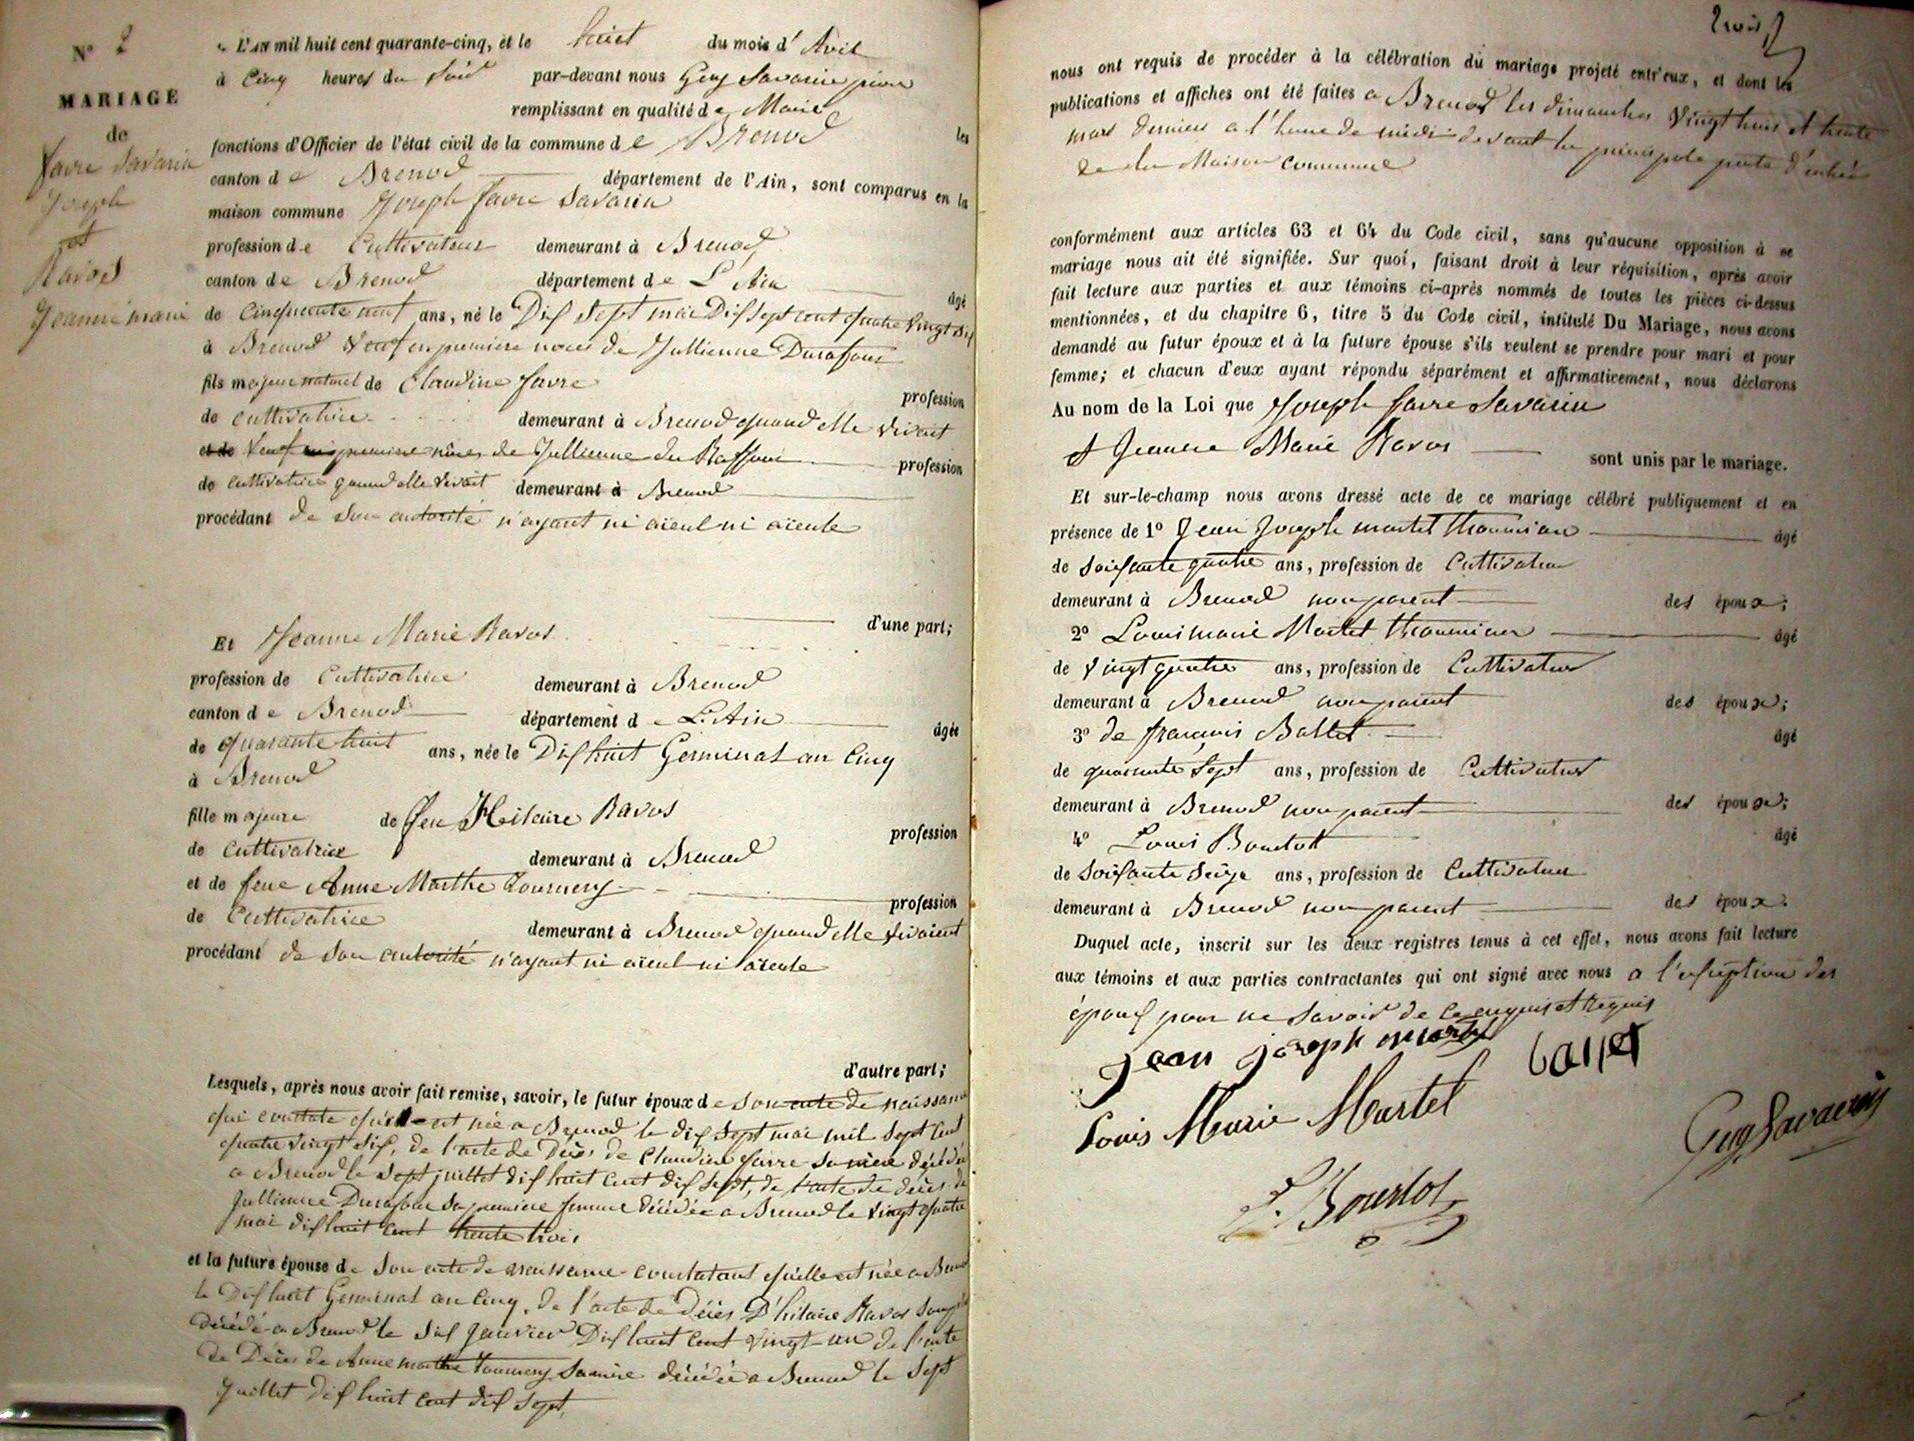 N° 2
MARIAGE
de
favre Savarin
Joseph
et
Ravos
Jeanne marie
L'AN mil huit cent quarante-cinq, et le huit du mois d' Avril
à Cinq heures du Soir par-devant nous Guy Savarin pierre
remplissant en qualité de Maire les
fonctions d'Officier de l'état civil de la commune de Brenod
canton de Brenod département de l'Ain, sont comparus en la
maison commune Joseph favre Savarin
profession de Cultivateur demeurant à Brenod
canton de Brenod département de L'Ain âgé
de Cinquante neuf ans, né le Dix sept mai Dix sept cent quatre vingt six
à Brenod Veuf en premiere noces de Jullienne Durafour
fils majeur naturel de Claudine favre profession
de cultivatrice demeurant à Brenod quand elle vivait
et de Veuf en premiere nôces de Jullienne du Raffour profession
de cultivatrice quand elle vivait demeurant à Brenod
procédant de son autorité n'ayant ni aïeul ni aïeule
d'une part;
Et Jeanne Marie Ravos
profession de Cultivatrice demeurant à Brenod
canton de Brenod département de L'Ain âgée
de quarante huit ans, née le Dix huit Germinal an Cinq
à Brenod
fille majeure de feu Hilaire Ravos profession
de cultivatrice demeurant à Brenod
et de feue Anne Marthe Tournery profession
de Cultivatrice demeurant à Brenod quand elle vivoient
procédant de son autorité n'ayant ni aïeul ni aïeule
d'autre part;
Lesquels, après nous avoir fait remise, savoir, le futur époux de son acte de naissance
qui constate qu'il est née a Brenod le dix sept mai mil sept cent
quatre vingt six, de l'acte de Décès de Claudine favre sa mère décédée
a Brenod le sept juillet dix huit cent dix sept, de l'acte de décès de
Jullienne Durafour sa premiere femme décédée a Brenod le vingt quatre
mai dix huit cent trente trois
et la future épouse de son acte de naissance constatant qu'elle est née a Brenod
le Dix huit Germinal an Cinq, de l'acte de Décès D'hilaire Ravos son père
décédé a Brenod le six Janvier Dix huit cent vingt un de l'acte
de Décès de Anne marthe Tournery sa mère décédée a Brenod le sept
Juillet dix huit cent dix sept,
trois
nous ont requis de procéder à la célébration du mariage projeté entr'eux, et dont les
publications et affiches ont été faites a Brenod les dimanches vingt trois et trente
mars derniers a l'heure de midi devant la principale porte d'entrée
de la Maison commune
conformément aux articles 63 et 64 du Code civil, sans qu'aucune opposition à ce
mariage nous ait été signifiée. Sur quoi, faisant droit à leur réquisition, après avoir
fait lecture aux parties et aux témoins ci-après nommés de toutes les pièces ci-dessus
mentionnées, et du chapitre 6, titre 5 du Code civil, intitulé Du Mariage, nous avons
demandé au futur époux et à la future épouse s'ils veulent se prendre pour mari et pour
femme; et chacun d'eux ayant répondu séparément et affirmativement, nous déclarons
Au nom de la Loi que Joseph favre Savarin
et Jeanne Marie Ravos sont unis par le mariage.
Et sur-le-champ nous avons dressé acte de ce mariage célébré publiquement et en
présence de 1° Jean Joseph martel Thoumian âgé
de Soixante quatre ans, profession de Cultivateur
demeurant à Brenod non parent des époux;
2° Louis marie Martel Thoumian âgé
de Vingt quatre ans, profession de Cultivateur
demeurant à Brenod non parent des époux;
3° de françois Ballet âgé
de quarante sept ans, profession de Cultivateur
demeurant à Brenod non parent des époux;
4° Louis Bourlot âgé
de soixante seize ans, profession de Cultivateur
demeurant à Brenod non parent des époux.
Duquel acte, inscrit sur les deux registres tenus à cet effet, nous avons fait lecture
aux témoins et aux parties contractantes qui ont signé avec nous a l'exeption des
époux pour ne savoir de ce enquis et requis
jean joseph martel
ballet
Louis Marie Martel
Guy Savarin
L. Bourlot